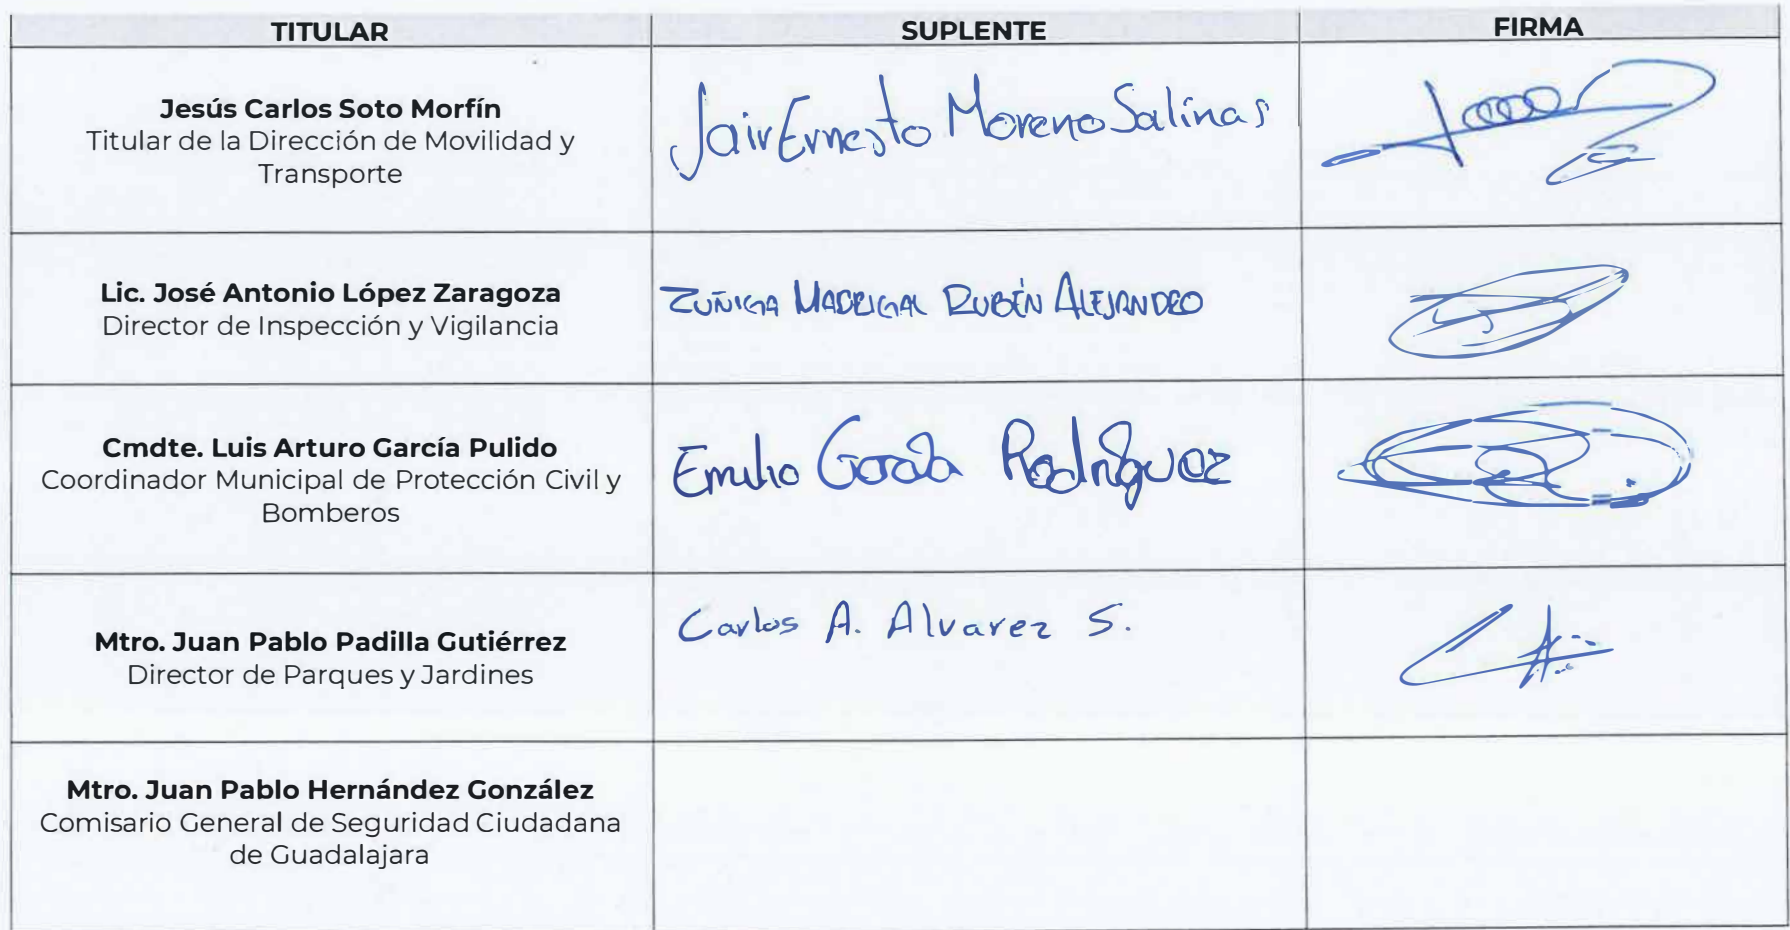 TITULAR SUPLENTE FIRMA
Jesús Carlos Soto Morfín
Titular de la Dirección de Movilidad y
Transporte
Jair Ernesto Moreno Salinas
Lic. José Antonio López Zaragoza
Director de Inspección y Vigilancia
ZUÑIGA MADRIGAL RUBÉN ALEJANDRO
Cmdte. Luis Arturo García Pulido
Coordinador Municipal de Protección Civil y
Bomberos
Emilio García Rodríguez
Mtro. Juan Pablo Padilla Gutiérrez
Director de Parques y Jardines
Carlos A. Alvarez S.
Mtro. Juan Pablo Hernández González
Comisario General de Seguridad Ciudadana
de Guadalajara